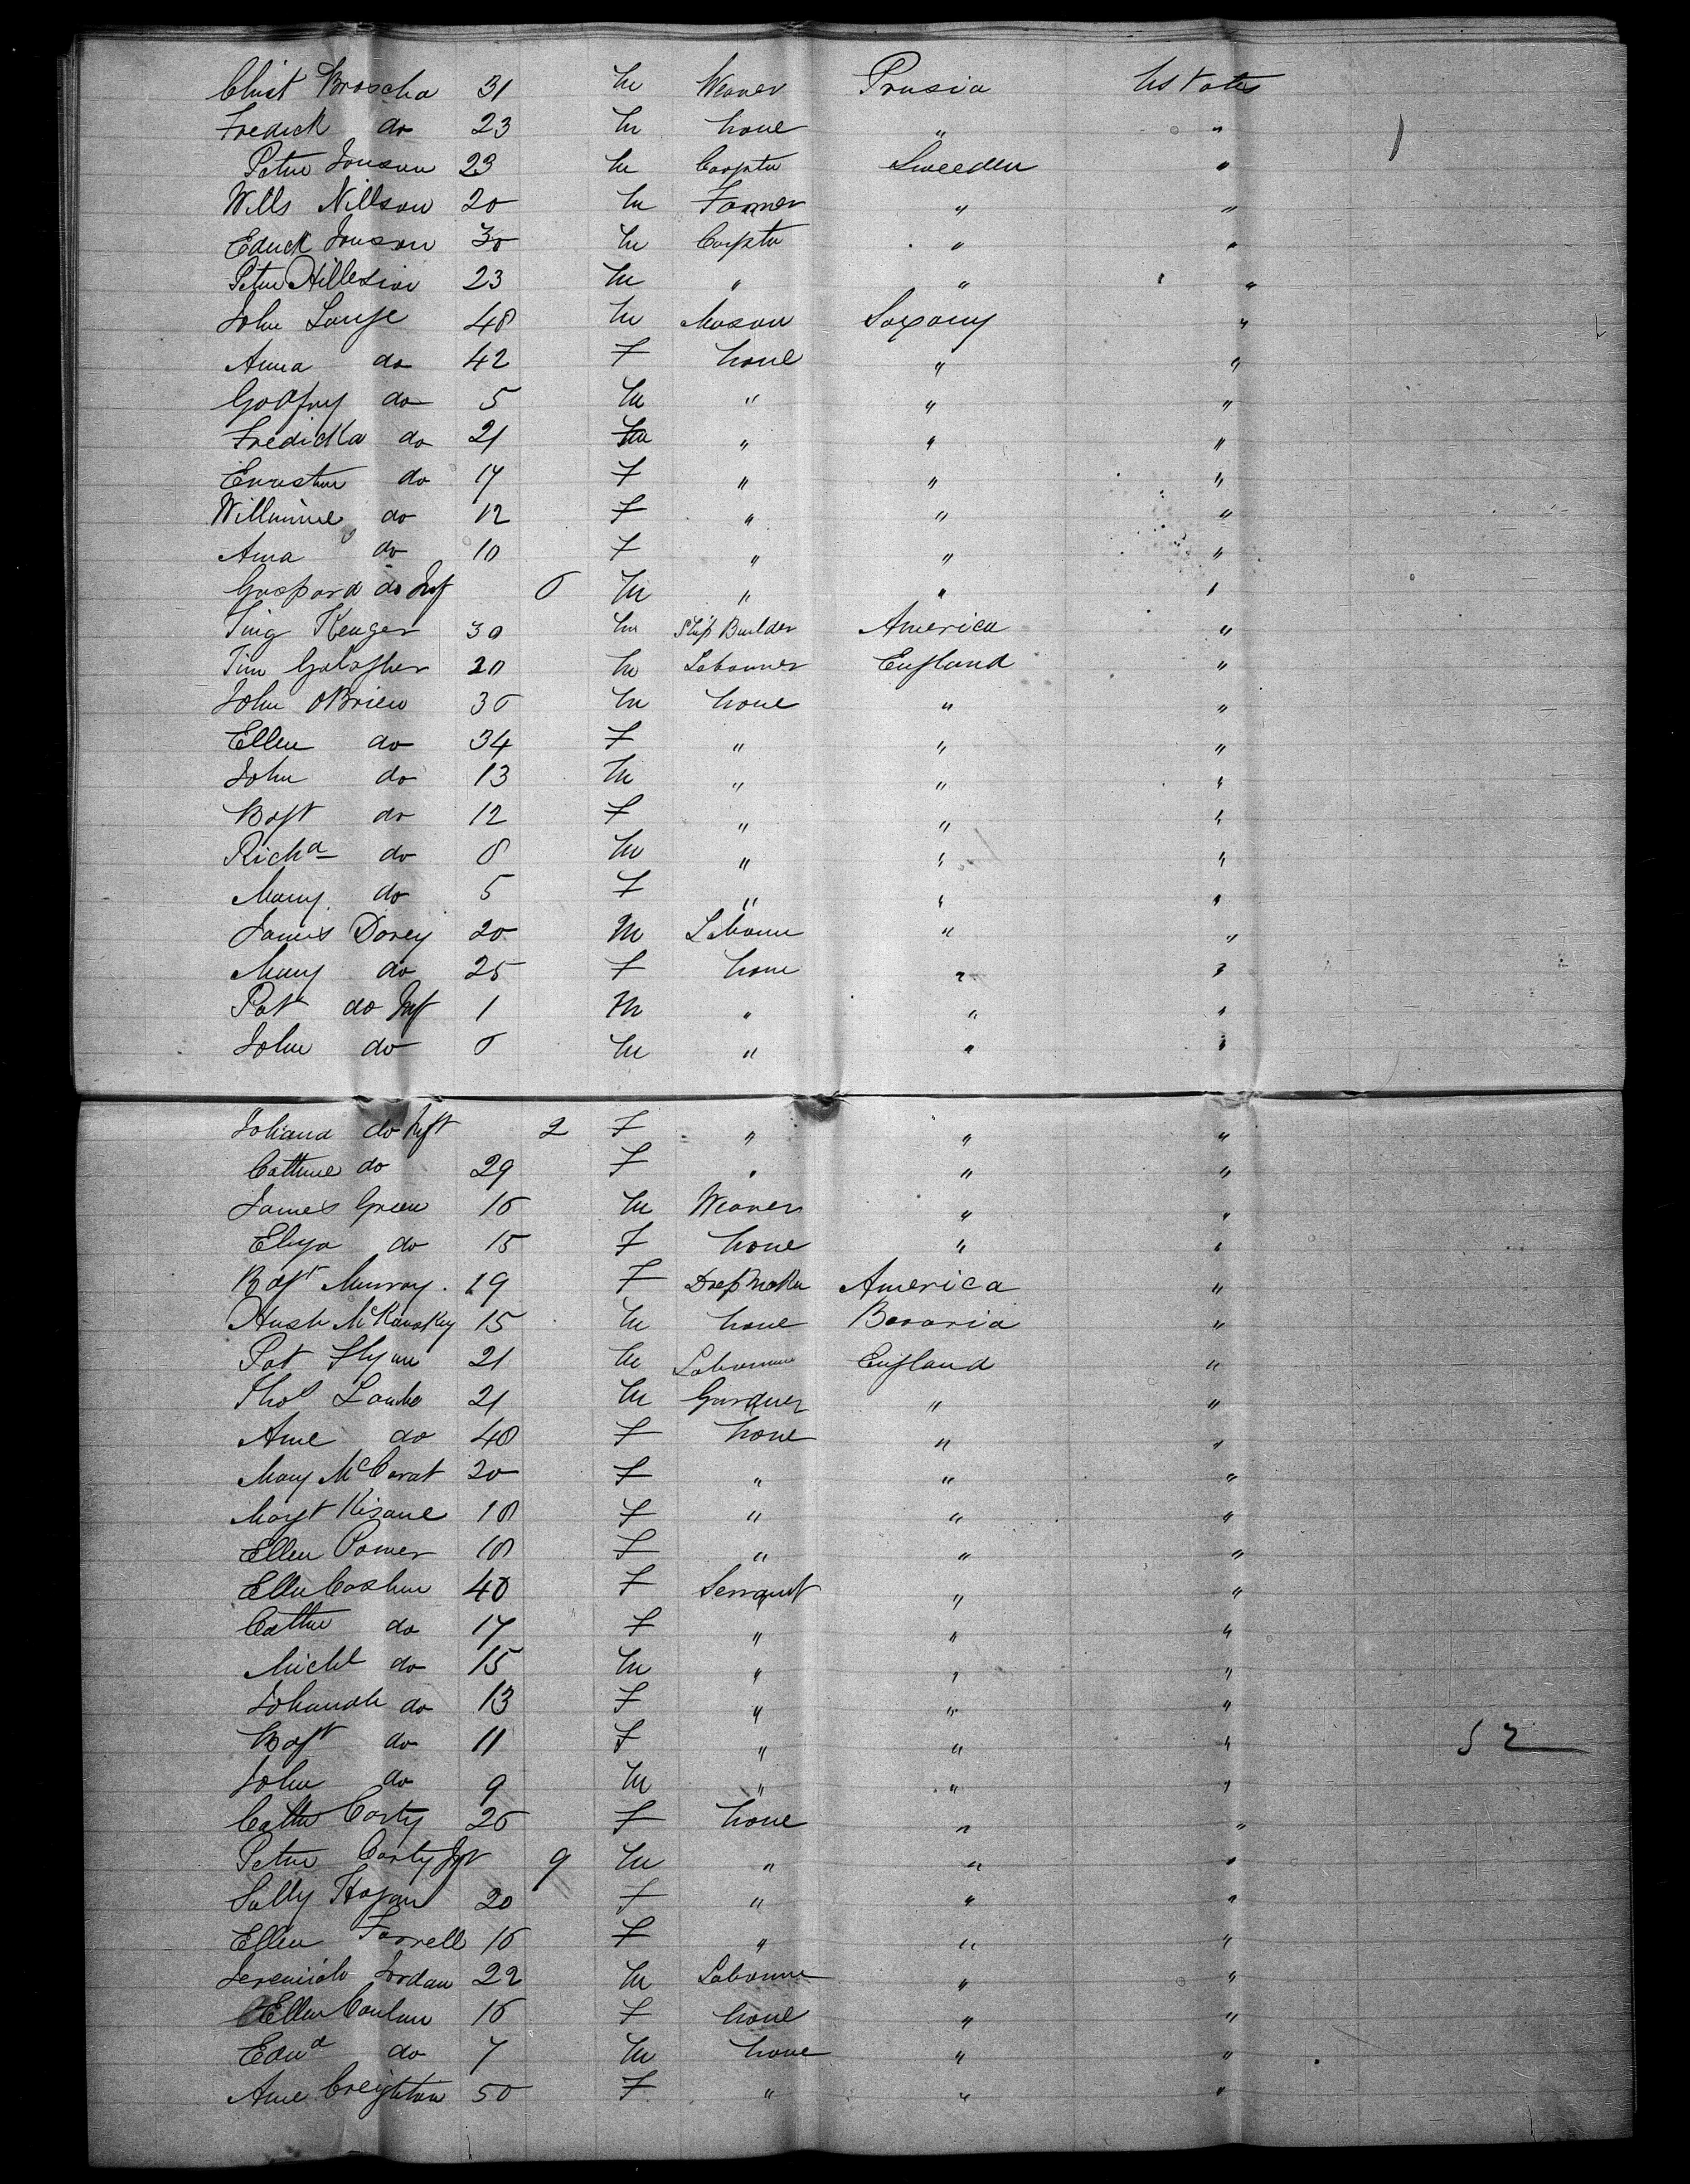 Christ Broscha 31 M Weaver Prusia U States
Fredick do 23 M None " " 1
Peter Jonson 23 M Carptr Sweeden "
Wills Nillson 20 M Farmer " "
Edrick Jonson 30 M Carptr " "
Peter Hillesion 23 M " " "
John Lange 48 M Mason Saxony "
Anna do 42 F None " "
Godfry do 5 M " " "
Fredicka do 21 " " "
Ernestine do 17 F " " "
Willmine do 12 F " " "
Ana do 10 F " " "
Gaspard do Inf 6 M " " "
Ting Kenger 30 M Ship Builder America "
Tim Galagher 20 M Labourer England "
John OBrien 36 M None " "
Ellen do 34 F " " "
John do 13 M " " "
Bgt do 12 F " " "
Richd do 8 M " " "
Mary do 5 F " " "
James Dorey 20 M Labourer " "
Mary do 25 F None " "
Pat do Inf 1 M " " "
John do 6 M " " "
Johana do Inft 2 F " " "
Cathrine do 29 F " " "
James Green 16 M Weaver " "
Eliza do 15 F None " "
Bgt Murray 19 F DressMaker America "
Hush 15 M None Bavaria "
Pat Flynn 21 M Labourer England "
Thos Lambe 21 M Gardner " "
Ann do 48 F None " "
Mary McCarat 20 F " " "
Margt Kisane 18 F " " "
Ellen Power 18 F " " "
Ellen Coshen 40 F Servant " "
Cathn do 17 F " " "
Michl do 15 M " " "
Johanah do 13 F " " "
Bgt do 11 F " " " 52
John do 9 M " " "
Cathn Carty 26 F None " "
Peter Carty Inft 9 M " " "
Sally Hogan 20 F " " "
Ellen Farrell 16 F " " "
Jeremiah Jordan 22 M Labourer " "
Ellen Conlan 16 F None " "
Edwd do 7 M None " "
Ann Creighton 50 F " " "